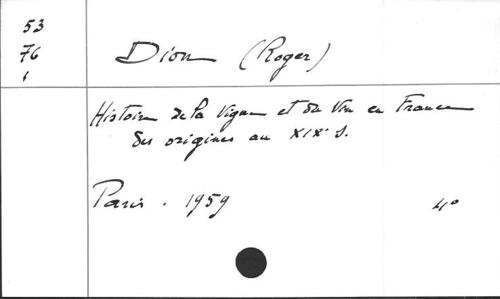 53
76
1
Dion (Roger)
Histoire de la Vigne et du Vin en France
des origines au XIXe s.
Paris. 1959
4°